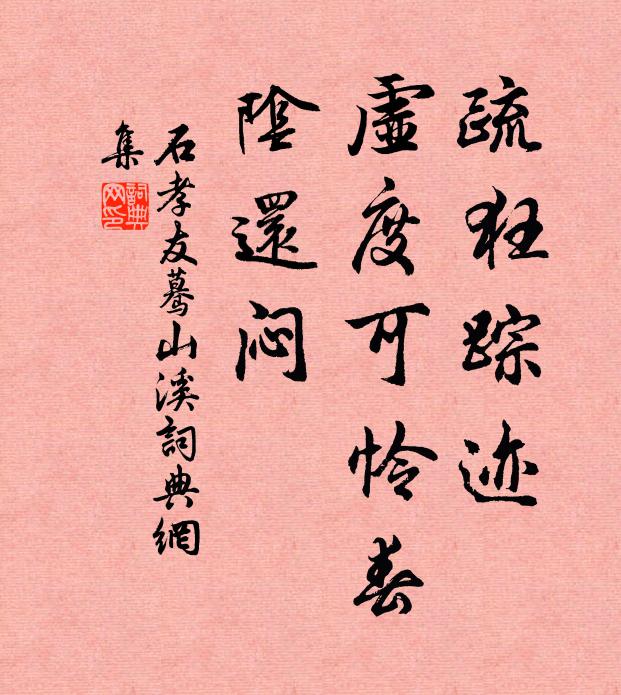 疏狂踪迹
虚度可怜春
陰還闷
石孝友蓦山溪詞典網
集
詞典
网印